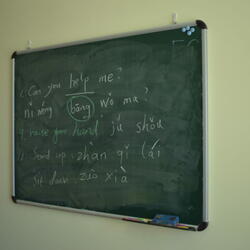 Can you help me?
nǐ néng bāng wǒ ma?
raise your hand jǔ shǒu
Stand up zhàn qǐ lái
Sit down zuò xià